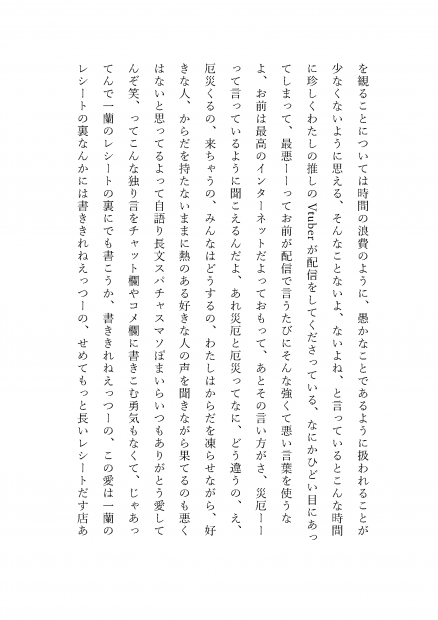 を観ることについては時間の浪費のように、愚かなことであるように扱われることが
少なくないように思える、そんなことないよ、ないよね、と言っているとこんな時間
に珍しくわたしの推しの Vtuber が配信をしてくださっている、なにかひどい目にあっ
てしまって、最悪ーーってお前が配信で言うたびにそんな強くて悪い言葉を使うな
よ、お前は最高のインターネットだよっておもって、あとその言い方がさ、災厄ーー
って言っているように聞こえるんだよ、あれ災厄と厄災ってなに、どう違うの、え、
厄災くるの、来ちゃうの、みんなはどうするの、わたしはからだを凍らせながら、好
きな人、からだを持たないままに熱のある好きな人の声を聞きながら果てるのも悪く
はないと思ってるよって自語り長文スパチャスマソぽまいらいつもありがとう愛して
んぞ笑、ってこんな独り言をチャット欄やコメ欄に書きこむ勇気もなくて、じゃあっ
てんで一蘭のレシートの裏にでも書こうか、書ききれねえっつーの、この愛は一蘭の
レシートの裏なんかには書ききれねえっつーの、せめてもっと長いレシートだす店あ